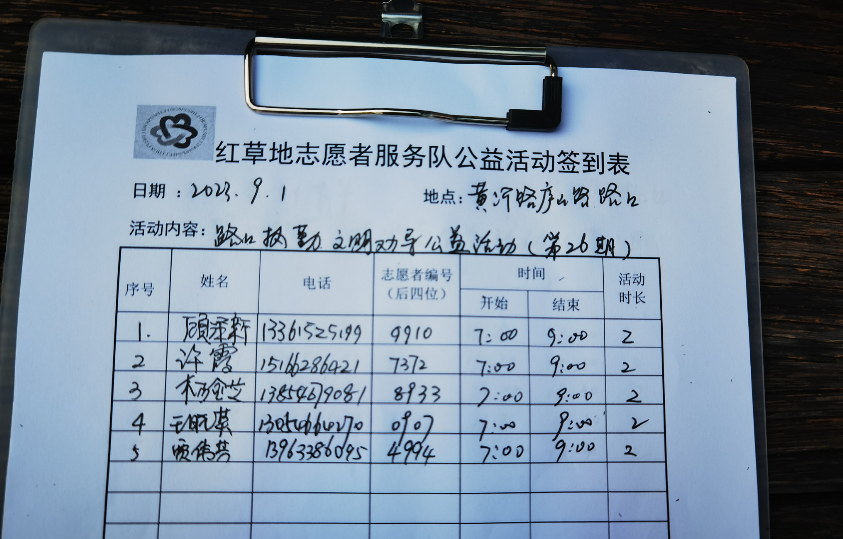 红草地志愿者服务队公益活动签到表
日期：2023.9.1 地点：黄河路庐山路路口
活动内容：路口执勤文明劝导公益活动（第26期）
序号 姓名 电话 志愿者编号（后四位） 时间 开始 结束 活动时长
1. 13361525199 9910 7:00 9:00 2
2 许霞 15166286421 7372 7:00 9:00 2
3 13854679081 8933 7:00 9:00 2
4 13054664270 0907 7:00 9:00 2
5 13963386095 4994 7:00 9:00 2